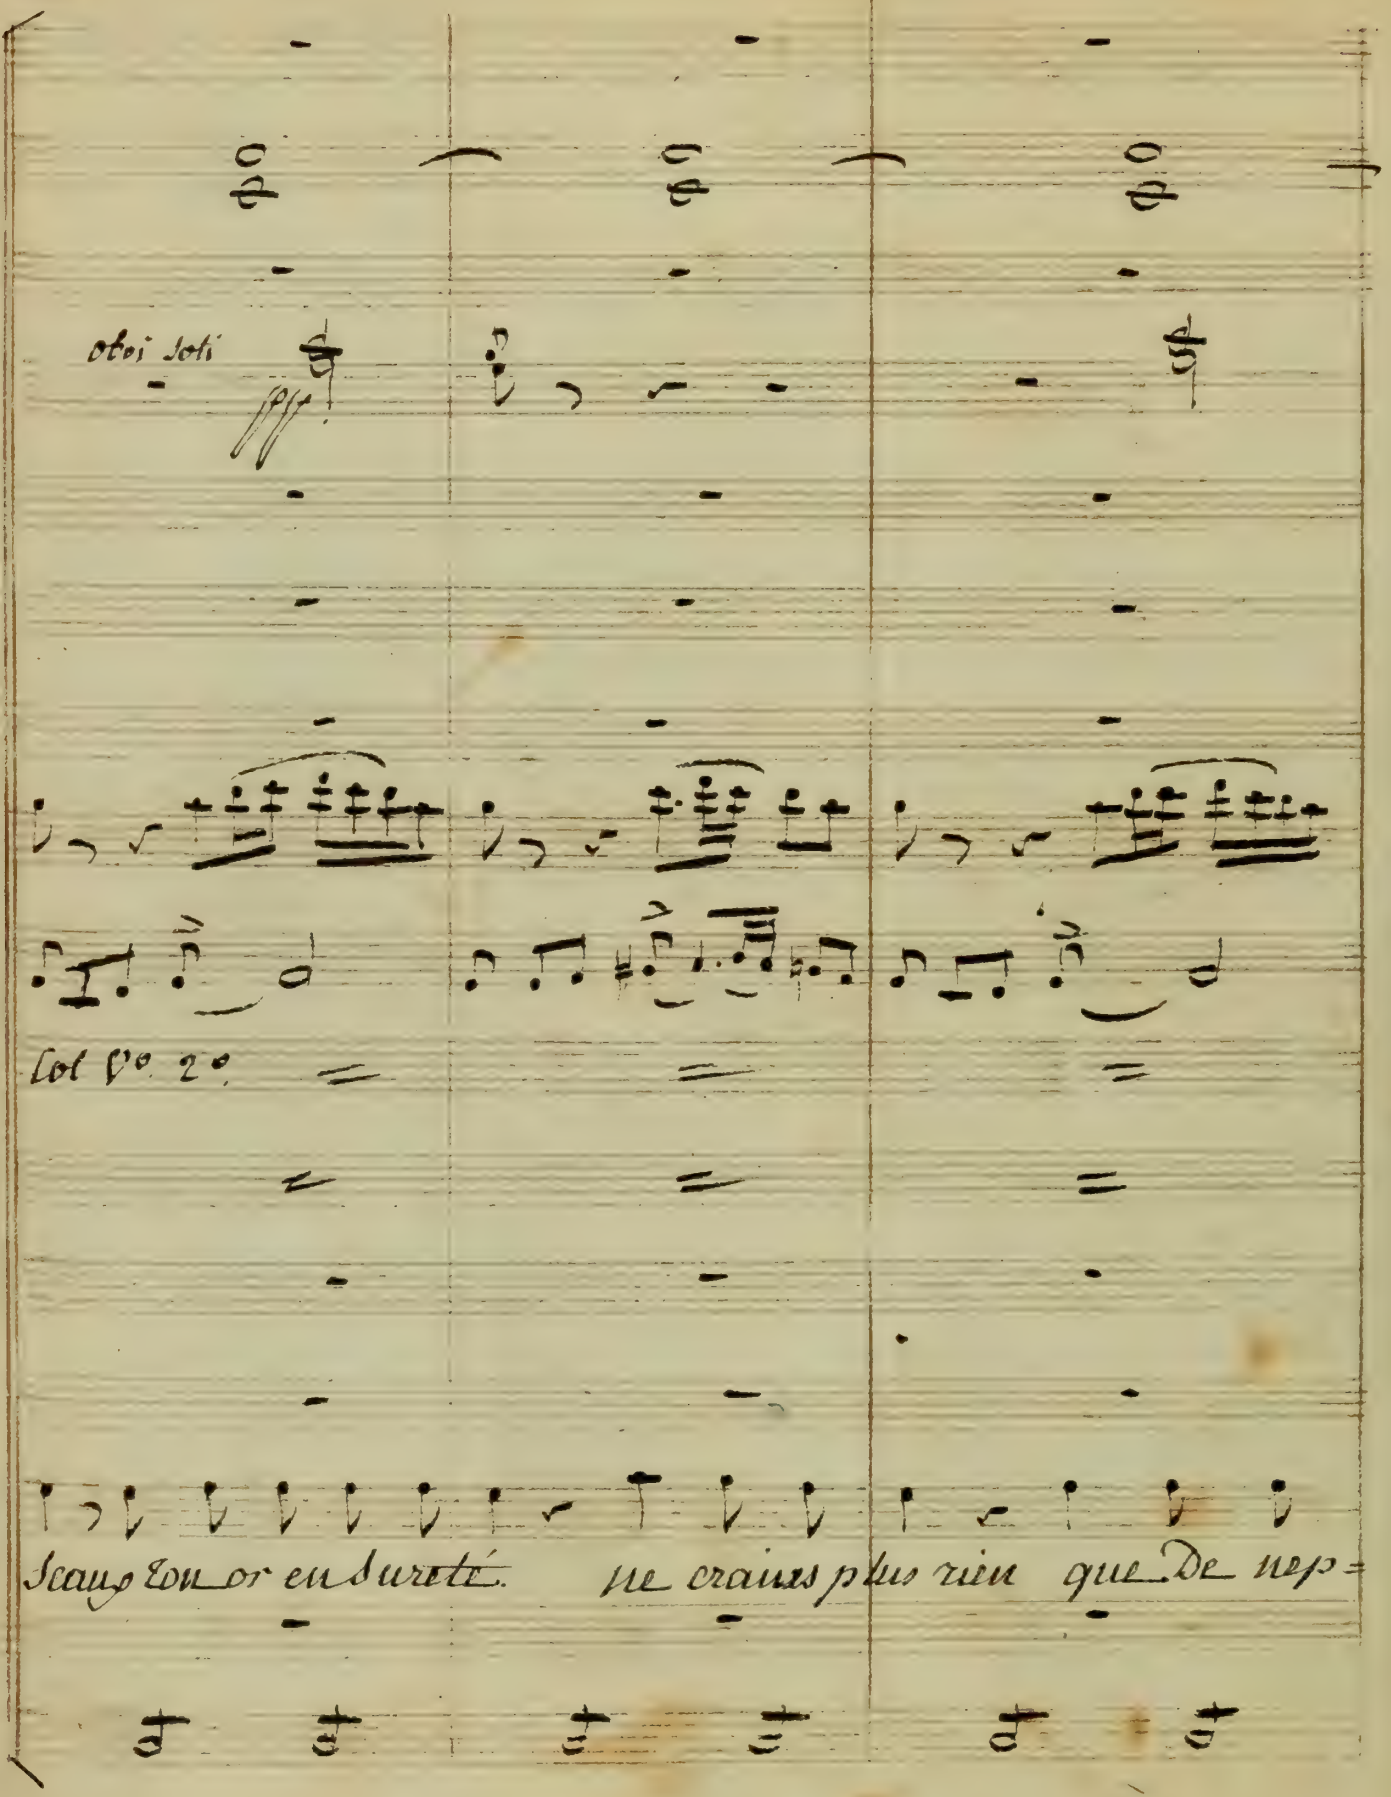 oboi soli
ppp
Col Vº 2º
sceaux ton or en Sureté. ne crains plus rien que De nep=